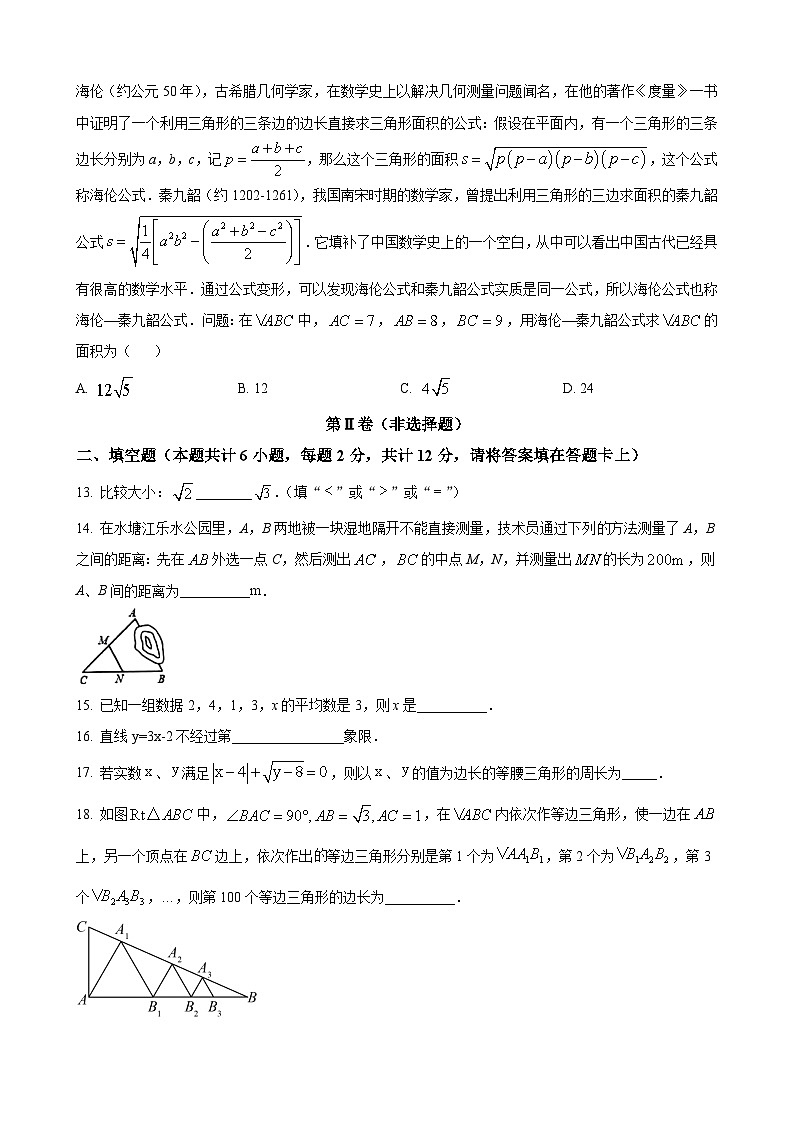 海伦(约公元 50 年),古希腊几何学家,在数学史上以解决几何测量问题闻名,在他的著作《度量》一书
中证明了一个利用三角形的三条边的边长直接求三角形面积的公式:假设在平面内,有一个三角形的三条
边长分别为 a,b,c,记 p = (a+b+c)/2,那么这个三角形的面积 s = √(p(p−a)(p−b)(p−c)),这个公式
称海伦公式.秦九韶(约 1202-1261),我国南宋时期的数学家,曾提出利用三角形的三边求面积的秦九韶
公式 s = √(1/4[a²b² − ((a²+b²−c²)/2)]).它填补了中国数学史上的一个空白,从中可以看出中国古代已经具
有很高的数学水平.通过公式变形,可以发现海伦公式和秦九韶公式实质是同一公式,所以海伦公式也称
海伦—秦九韶公式.问题:在 VABC 中,AC = 7,AB = 8,BC = 9,用海伦—秦九韶公式求 VABC 的
面积为( )
A. 12√5 B. 12 C. 4√5 D. 24
第Ⅱ卷(非选择题)
二、填空题(本题共计 6 小题,每题 2 分,共计 12 分,请将答案填在答题卡上)
13. 比较大小:√2 ________ √3.(填“<”或“>”或“=”)
14. 在水塘江乐水公园里,A,B 两地被一块湿地隔开不能直接测量,技术员通过下列的方法测量了 A,B
之间的距离:先在 AB 外选一点 C,然后测出 AC,BC 的中点 M,N,并测量出 MN 的长为 200m,则
A、B 间的距离为__________m.
A
M
C N B
15. 已知一组数据 2,4,1,3,x 的平均数是 3,则 x 是__________.
16. 直线 y=3x-2 不经过第________________象限.
17. 若实数 x、y 满足 |x−4|+√(y−8)=0,则以 x、y 的值为边长的等腰三角形的周长为_____.
18. 如图 Rt△ABC 中,∠BAC = 90°, AB = √3, AC = 1,在 VABC 内依次作等边三角形,使一边在 AB
上,另一个顶点在 BC 边上,依次作出的等边三角形分别是第 1 个为 VAA₁B₁,第 2 个为 VB₁A₂B₂,第 3
个 VB₂A₃B₃,…,则第 100 个等边三角形的边长为__________.
C A₁
A₂
A₃
A B₁ B₂ B₃ B